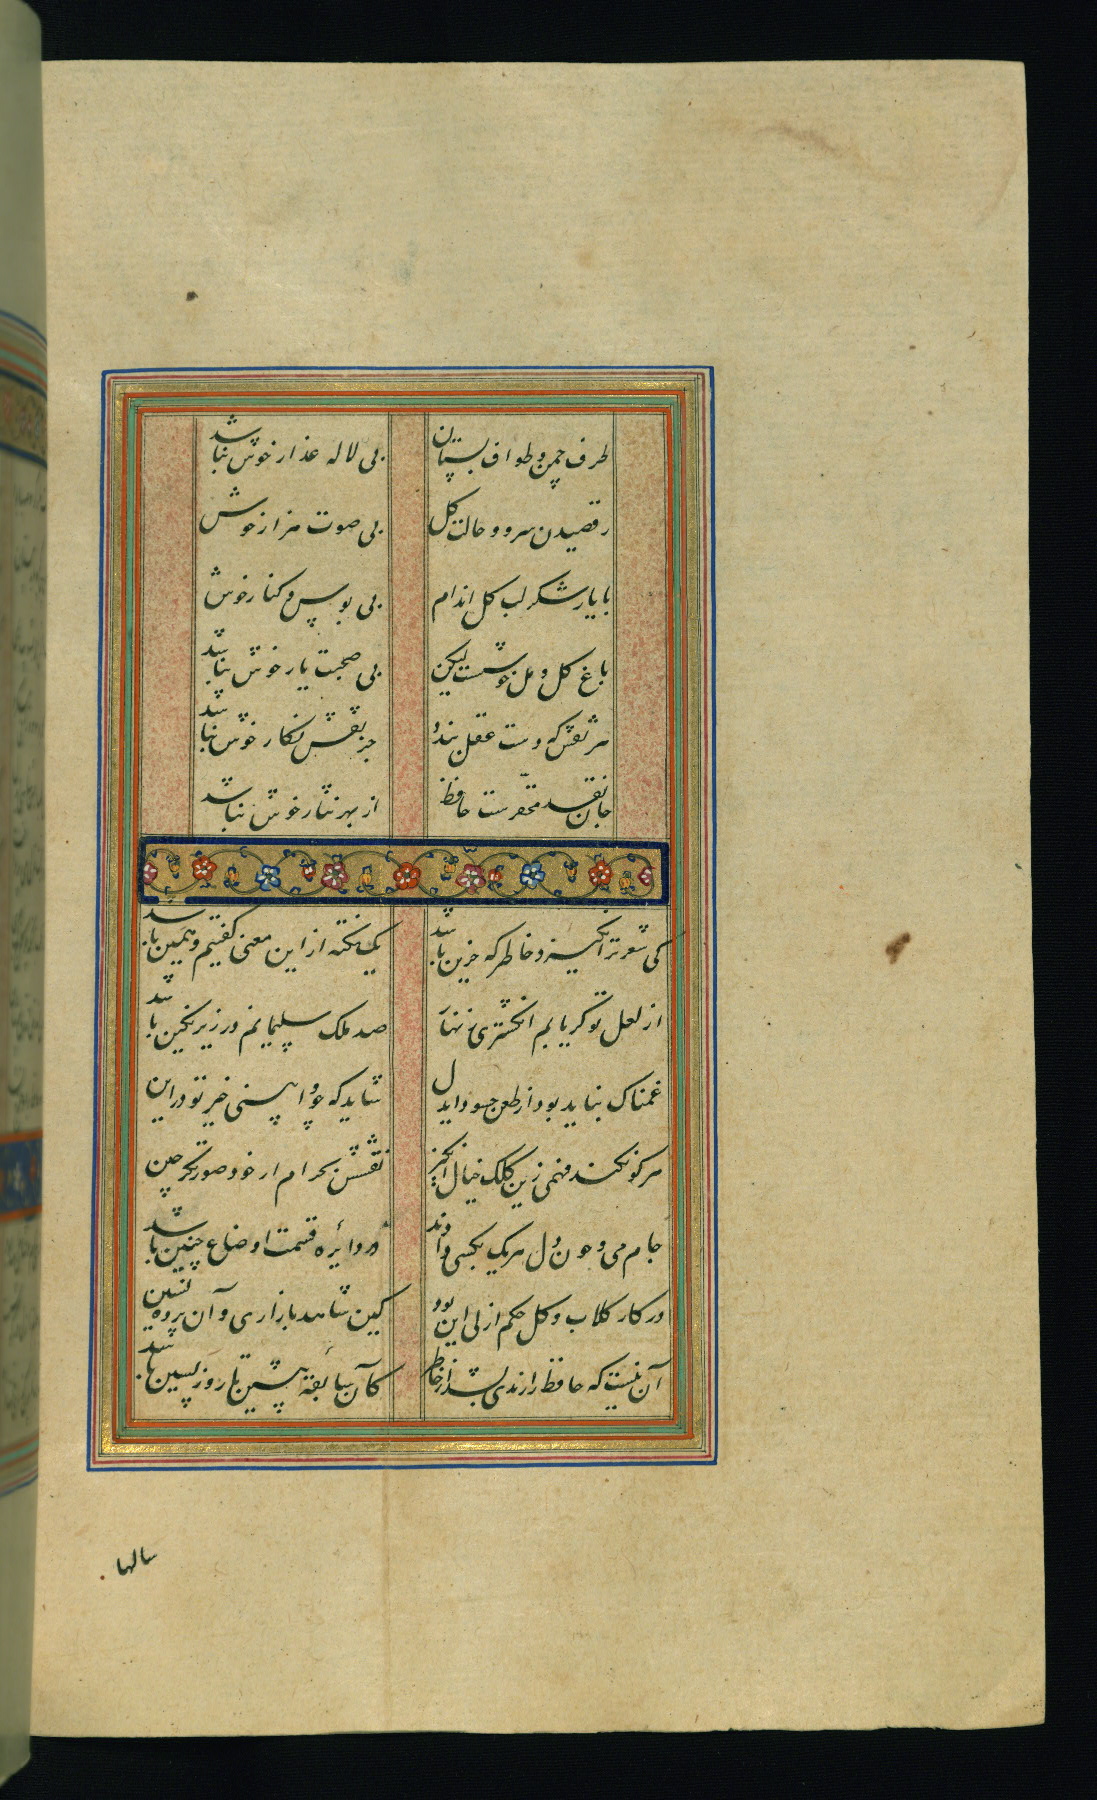 طرف چمن و طواف بستان بی لاله عذار خوش نباشد
رقصیدن سرو و حالت کل بی صوت هزار خوش
با یار شکر لب کل اندام بی بوس و کنار خوش
باغ کل و مل خوشست لیکن بی صحبت یار خوش نباشد
هر نقش که دست عقل بندد جز نقش نکار خوش نباشد
جان نقد محقرست حافظ از بهر نثار خوش نباشد
کی شعر تر انکیزد خاطر که حزین باشد یک نکته از این معنی کفتیم و همین باشد
از لعل تو کر یابم انکشتری زنهار صد ملک سلیمانم در زیر نکین باشد
غمناک نباید بود از طعن حسود ای دل شاید که چو وا بینی خیر تو در این
هر کو نکند فهمی زین کلک خیال انکیز نقشش بحرام ار خود صورتکر چین
جام می و خون دل هر یک بکسی دادند در دایره قسمت اوضاع چنین باشد
در کار کلاب و کل حکم ازلی این بود کین شاهد بازاری و آن پرده نشین
آن نیست که حافظ را رندی بشد از خاطر کآن سابقه پیشین تا روز پسین باشد
سالها